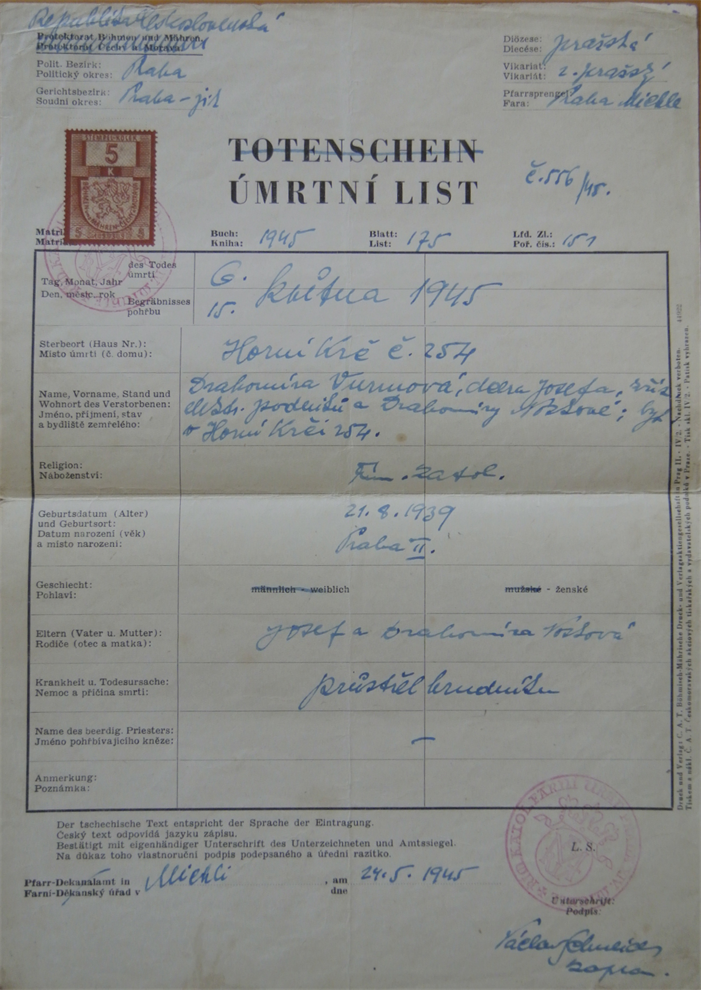 Republika Československá
Protektorat Böhmen und Mähren
Protektorát Čechy a Morava
Polit. Bezirk:
Politický okres: Praha
Gerichtsbezirk:
Soudní okres: Praha-jih
Diözese:
Diecése: pražská
Vikariat:
Vikariát: I. pražský
Pfarrsprengel
Fara: Praha Michle
5
K
TOTENSCHEIN
ÚMRTNÍ LIST
č. 556/45.
Matri
Matri
Buch:
Kniha: 1945
Blatt:
List: 175
Lfd. Zl.:
Poř. čís.: 151
Tag, Monat, Jahr des Todes
Den, měsíc, rok úmrtí 6.
Begräbnisses
pohřbu 15. května 1945
Sterbeort (Haus Nr.):
Místo úmrtí (č. domu): Horní Krč č. 254
Name, Vorname, Stand und
Wohnort des Verstorbenen:
Jméno, příjmení, stav
a bydliště zemřelého:
Drahomíra Vurmová, dcera Josefa,
podniků a Drahomíry
v Horní Krči 254.
Religion:
Náboženství: řím. katol.
Geburtsdatum (Alter)
und Geburtsort:
Datum narození (věk)
a místo narození:
21. 8. 1939
Praha II.
Geschlecht: männlich - weiblich
Pohlaví: mužské - ženské
Eltern (Vater u. Mutter):
Rodiče (otec a matka): Josef a Drahomíra
Krankheit u. Todesursache:
Nemoc a příčina smrti: průstřel hrudníku
Name des beerdig. Priesters:
Jméno pohřbívajícího kněze: —
Anmerkung:
Poznámka:
Der tschechische Text entspricht der Sprache der Eintragung.
Český text odpovídá jazyku zápisu.
Bestätigt mit eigenhändiger Unterschrift des Unterzeichneten und Amtssiegel.
Na důkaz toho vlastnoruční podpis podepsaného a úřední razítko.
L. S.
Pfarr-Dekanalamt in , am
Farní-Děkanský úřad v Michli dne 24. 5. 1945
Unterschrift:
Podpis.
Václav